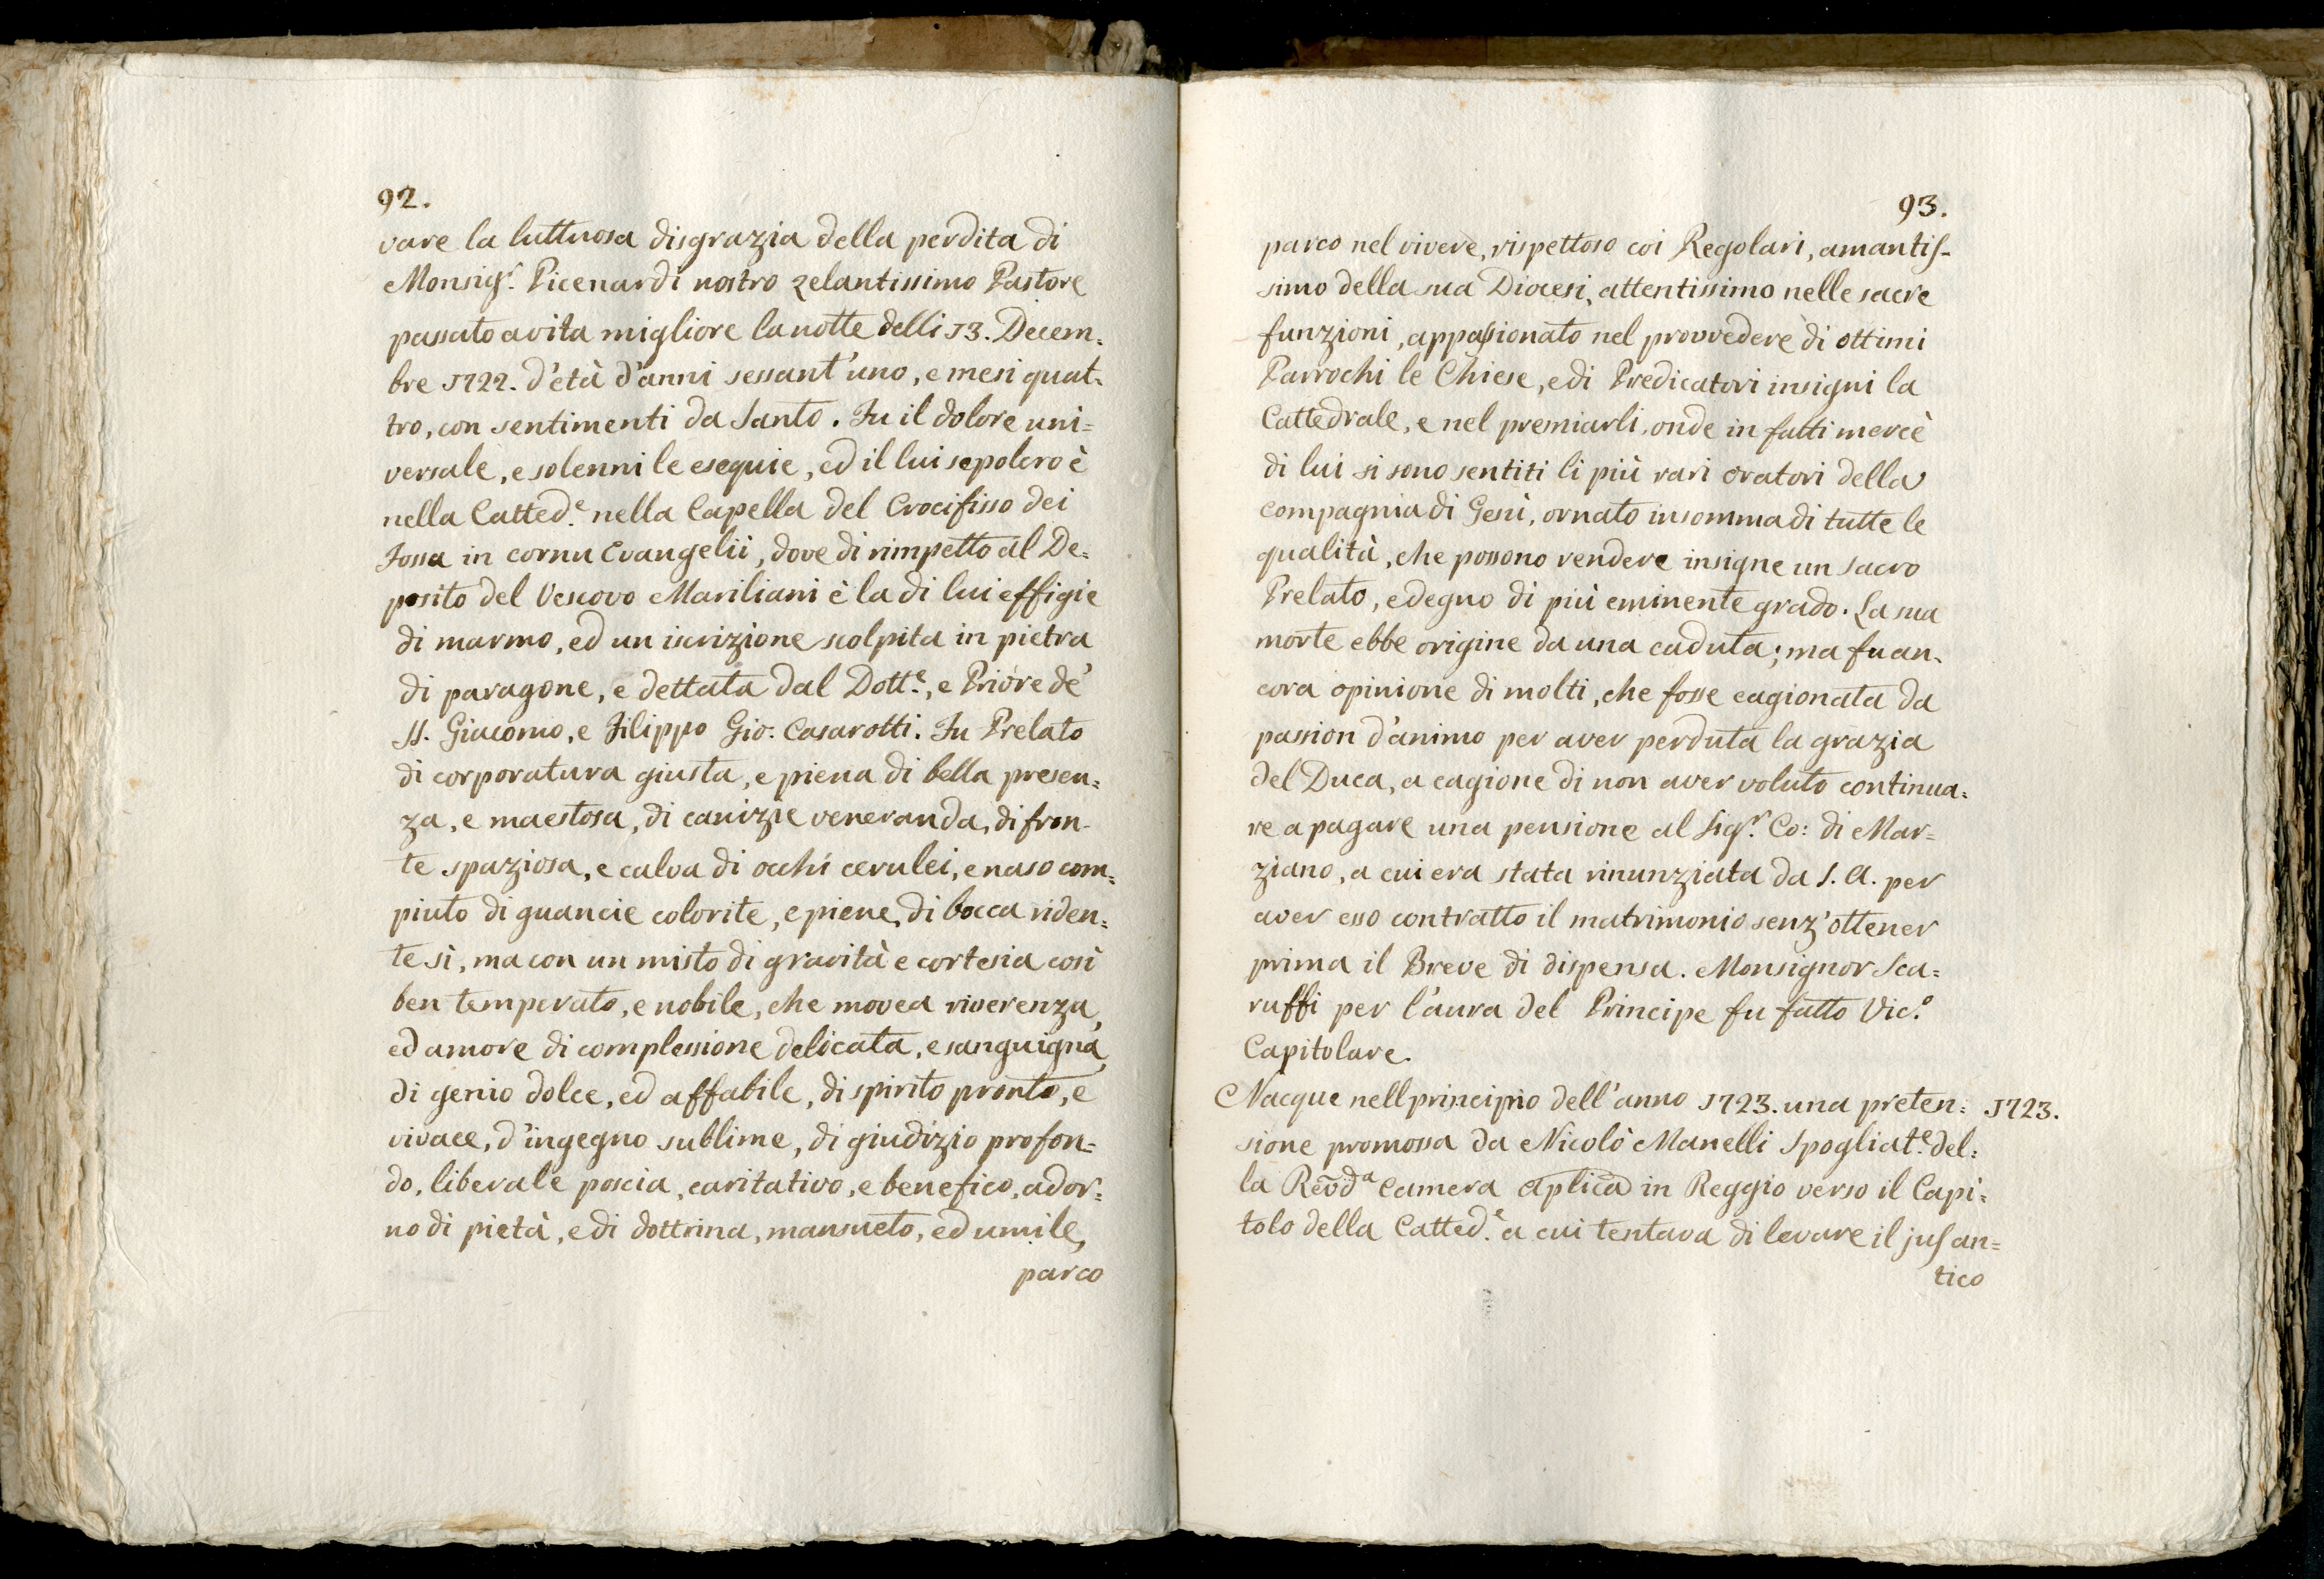 92.
vare la luttuosa disgrazia della perdita di
Monsig.r Picenardi nostro zelantissimo Pastore
passato a vita migliore la notte delli 13. Decem-
bre 1722. d'età d'anni sessant'uno, e mesi quat-
tro, con sentimenti da Santo. Fu il dolore uni=
versale, e solenni le esequie, ed il lui sepolcro è
nella Catted.e nella Capella del Crocifisso dei
Fossa in cornu Evangelii, dove di rimpetto al De=
posito del Vescovo Mariliani è la di lui effigie
di marmo, ed un iscrizione scolpita in pietra
di paragone, e dettata dal Dott.e, e Priore de'
SS. Giacomo, e Filippo Gio. Casarotti. Fu Prelato
di corporatura giusta, e piena di bella presen=
za, e maestosa, di canizie veneranda, di fron-
te spaziosa, e calva di occhi cerulei, e naso com=
piuto di guancie colorite, e piene, di bocca riden=
te sì, ma con un misto di gravità e cortesia così
ben temperato, e nobile, che movea riverenza,
ed amore di complessione delicata, e sanguigna,
di genio dolce, ed affabile, di spirito pronto, e
vivace, d'ingegno sublime, di giudizio profon=
do, liberale poscia, caritativo, e benefico, ador=
no di pietà, e di dottrina, mansueto, ed umile,
parco
93.
parco nel vivere, rispettoso coi Regolari, amantis-
simo della sua Diocesi, attentissimo nelle sacre
funzioni, appassionato nel provvedere di ottimi
Parrochi le Chiese, e di Predicatori insigni la
Cattedrale, e nel premiarli, onde in fatti mercè
di lui si sono sentiti li più rari oratori della
compagnia di Gesù, ornato insomma di tutte le
qualità, che possono rendere insigne un sacro
Prelato, e degno di più eminente grado. La sua
morte ebbe origine da una caduta; ma fu an-
cora opinione di molti, che fosse cagionata da
passion d'animo per aver perduta la grazia
del Duca, a cagione di non aver voluto continua=
re a pagare una pensione al Sig.r Co: di Mar=
ziano, a cui era stata rinunziata da S. A. per
aver esso contratto il matrimonio senz'ottener
prima il Breve di dispensa. Monsignor Sca=
ruffi per l'aura del Principe fu fatto Vic.o
Capitolare.
Nacque nell principio dell'anno 1723. una preten= 1723.
sione promossa da Nicolò Manelli Spogliat.e del=
la Revd.a Camera Aplica in Reggio verso il Capi=
tolo della Catted.e a cui tentava di levare il jus an=
tico